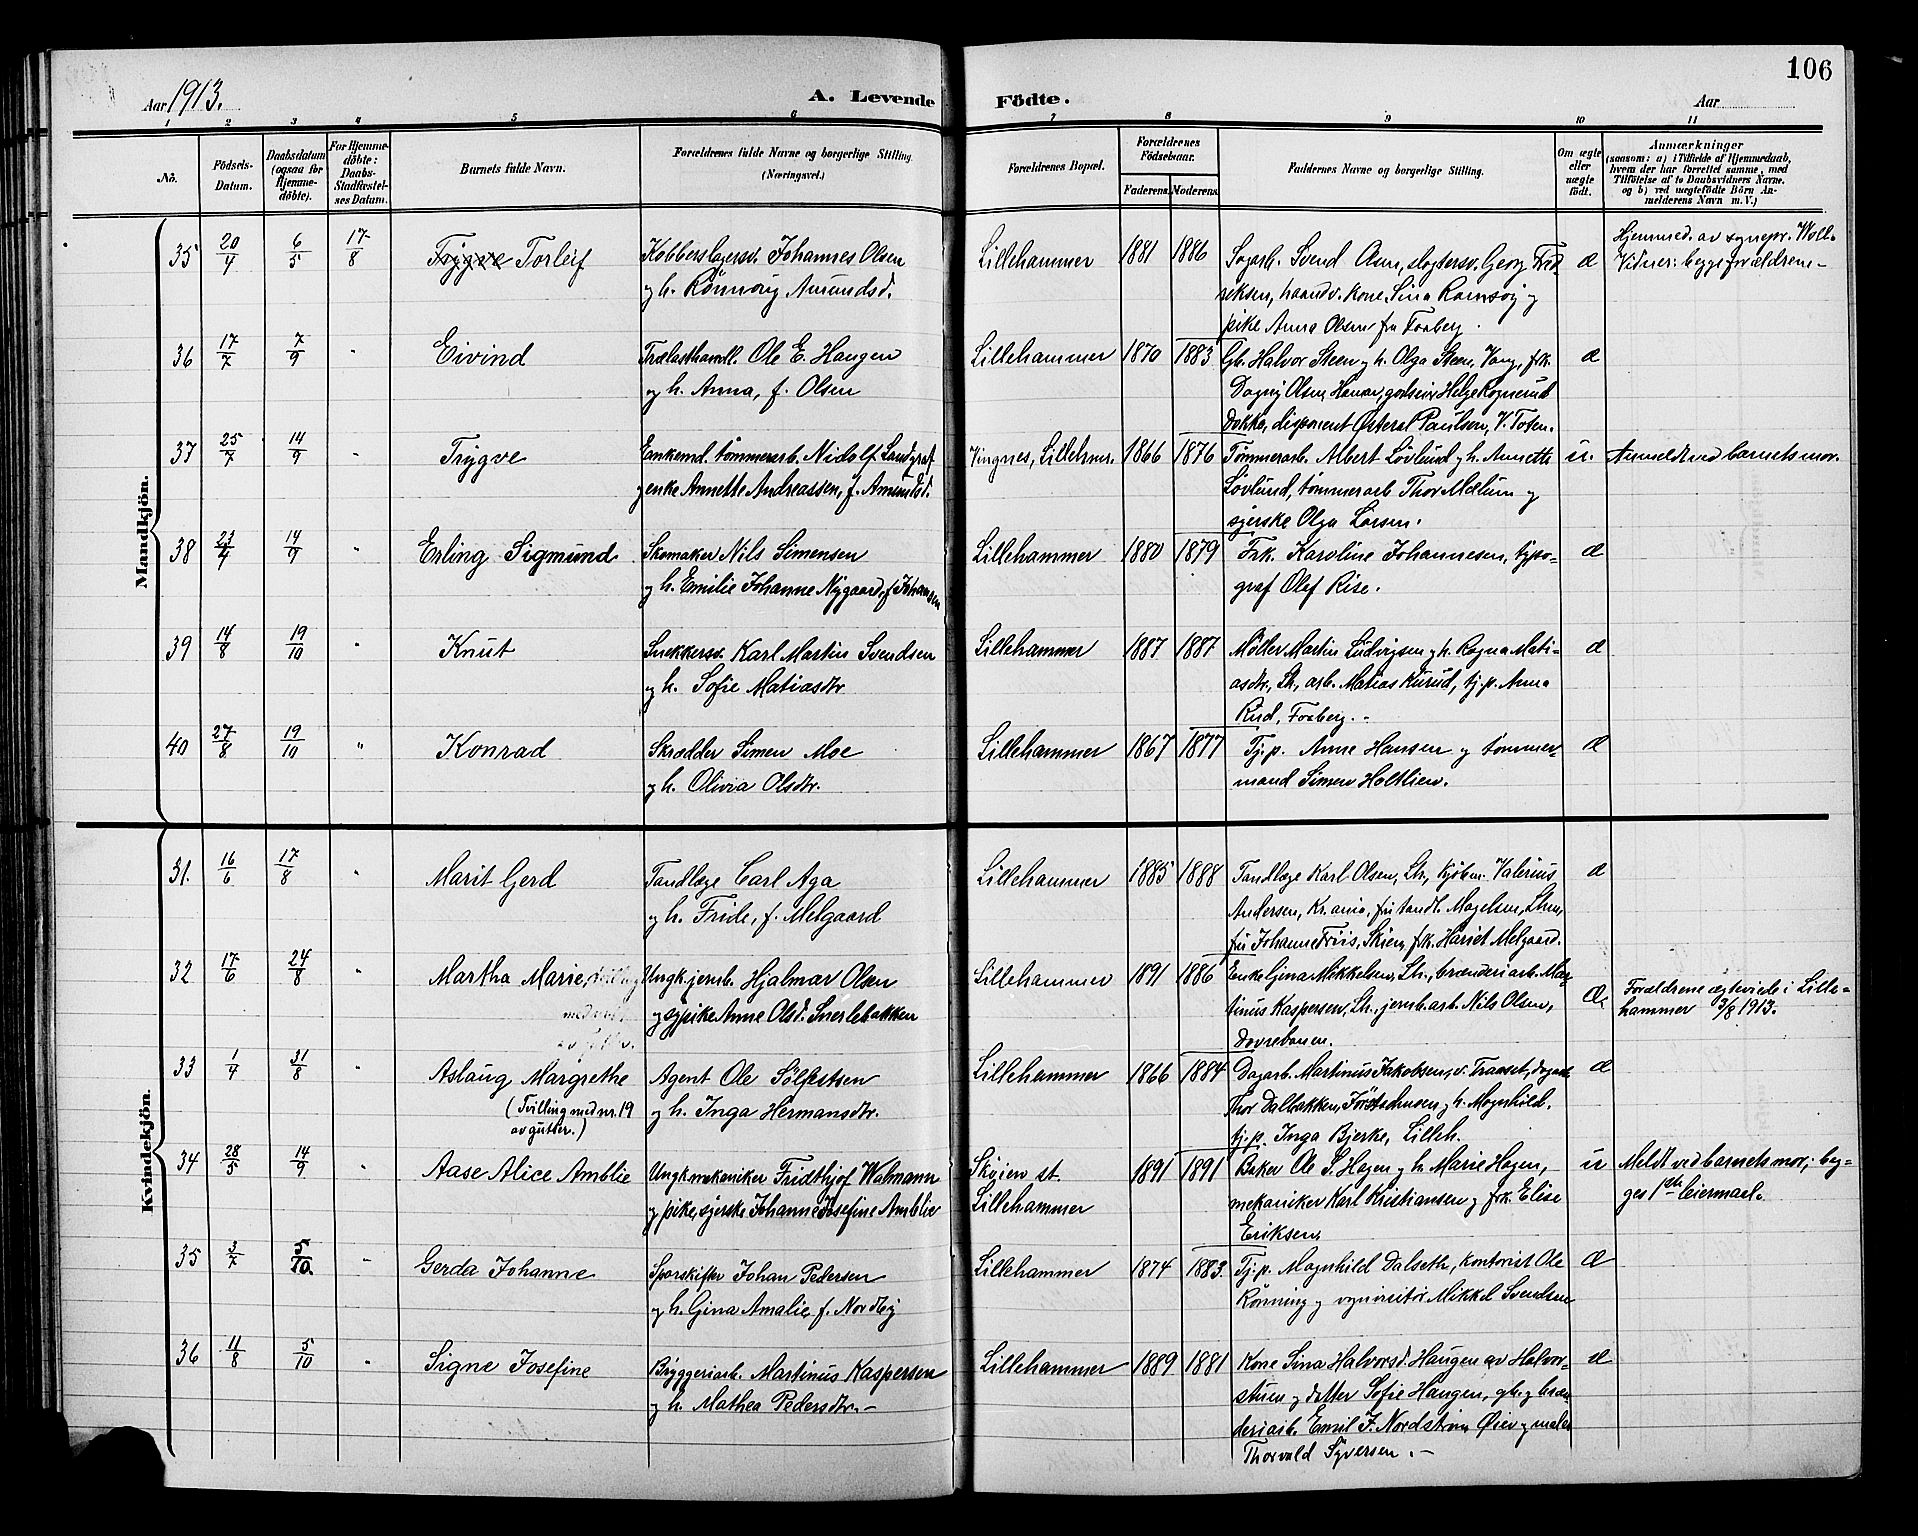 106
Aar 1913.
A. Levende Födte.
Aar
1 2 3 4 5 6 7 8 9 10 11
No.
Födsels-
Datum.
Daabsdatum
(ogsaa for
Hjemme-
döbte).
For Hjemme-
döbte:
Daabs-
Stadfæstel-
ses Datum.
Barnets fulde Navn.
Forældrenes fulde Navne og borgerlige Stilling.
(Næringsvei.)
Forældrenes Bopæl.
Forældrenes
Födselsaar.
Faderens. Moderens.
Faddernes Navne og borgerlige Stilling.
Om ægte
eller
uægte
födt.
Anmærkninger
(saasom: a) i Tilfælde af Hjemmedaab,
hvem der har forrettet samme, med
Tilföielse af to Daabsvidners Navne,
og b) ved uægtefödte Börn An-
melderens Navn m. V.)
Mandkjön.
35 20/4 6/5 17/8 Trygve Torleif
Kobberslagersv. Johannes Olsen
og h. Rønnaug Amundsd.
Lillehammer 1881 1886
Sagarb. Svend Olsen, slagtersv. Georg Fred
reksen, haandv. kone Sina Ramsøy og
pike Anna Olsen fra Faaberg.
æ
Hjemmed. av sognepr. Woll.
Vidner: begge forældrene-
36 17/7 7/9 " Eivind
Trælasthandl. Ole E. Haugen
og h. Anna, f. Olsen
Lillehammer 1870 1883
Gb. Halvor Steen og h. Olga Steen, Vang, frk.
Dagny Olsen, Hamar, godseier Helge Rognerud
Dokka, disponent Østerst Paulsen, V. Toten.
æ
37 25/7 14/9 " Trygve
Enkemd. tømmerarb. Nidolf Landgraf
og enke Annette Andreassen, f. Amundsd.
Vingnes, Lillehmr. 1866 1876
Tømmerarb. Albert Løvlund og h. Annette
Løvlund, tømmerarb Thor Mælum og
syerske Olga Larsen.
u.
Anmeldt ved barnets mor.
38 23/4 14/9 " Erling Sigmund
Skomaker Nils Simensen
og h. Emilie Johanne Nygaard, f. Johansen
Lillehammer 1880 1879
Frk. Karoline Johannesen, typo-
graf Olef Rise.
æ
39 14/8 19/10 " Knut
Snekkersv. Karl Martin Svendsen
og h. Sofie Matiasdtr
Lillehammer 1887 1887
Møller Martin Ludvigsen og h. Ragna Mati-
asdtr., Lh., arb. Matias Kurud, tj.p. Anna
Rud, Faaberg.-
æ
40 27/8 19/10 " Konrad
Skrædder Simen Moe
og h. Olivia Olsdtr.
Lillehammer 1867 1877
Tj.p. Anne Hansen og tømmer-
mand Simen Holtlien.
æ
Kvindekjön.
31. 16/6 17/8 " Marit Gerd
Tandlæge Carl Aga
og h. Fride, f. Melgaard
Lillehammer 1885 1888
Tandlæge Karl Olsen, Lh., kjøbm. Valerius
Andersen, Kr.ania, fru tandl. Magelsen, Lhm,
fru Johanne Friis, Skien, frk. Hariet Melgaard.
æ
32 17/6 24/8 " Martha Marie,
Ungk. jernb. Hjalmar Olsen
og sypike Anne Olsd. Snerlebakken
Lillehammer 1891 1886
Enke Gina Mikkelsen, Lh., brænderiarb. Mar-
tinus Kaspersen, Lh., jernb.arb. Nils Olsen,
Dovrebanen.
Æ.
Forældrene egteviede i Lille-
hammer 3/8 1913.
33 1/4 31/8 " Aslaug Margrethe
(Tvilling med nr. 19
av gutter.)
Agent Ole Sølfestsen
og h. Inga Hermansdtr.
Lillehammer 1866 1884
Dagarb. Martinus Jakobsen, v. Transet, dagarb
Thor Dalbakken, Førstadmoen og h. Magnhild.
tj.p. Inga Bjerke, Lilleh.
æ
34 28/5 14/9 " Aase Alice Amblie
Ungk. mekaniker Fridthjof Walmann
og pike, syerske Johanne Josefine Amblie
Skøien st.
Lillehammer
1891 1891
Baker Ole S. Hagen og h. Marie Hagen,
mekaniker Karl Kristiansen og frk. Elise
Eriksen.
u
Meldt ved barnets mor; beg-
ges 1ste leiermaal.
35 3/7 5/10. " Gerda Johanne
Sporskifter Johan Pedersen
og h. Gina Amalie, f. Nordby
Lillehammer 1874 1883.
Tj.p. Magnhild Dalseth, kontorist Ole
Rønning og vognvisitør Mikkel Svendsen
Æ
36 11/8 5/10 " Signe Josefine
Bryggeriarb. Martinus Kaspersen
og h. Mathea Pedersdtr.-
Lillehammer 1889 1881
Kone Sina Halvorsd. Haugen av Halvor-
stuen og datter Sofie Haugen, gb. og bræn-
deriarb. Emil F. Nordstrøm Øiev og maler
Thorvald Syversen.-
æ